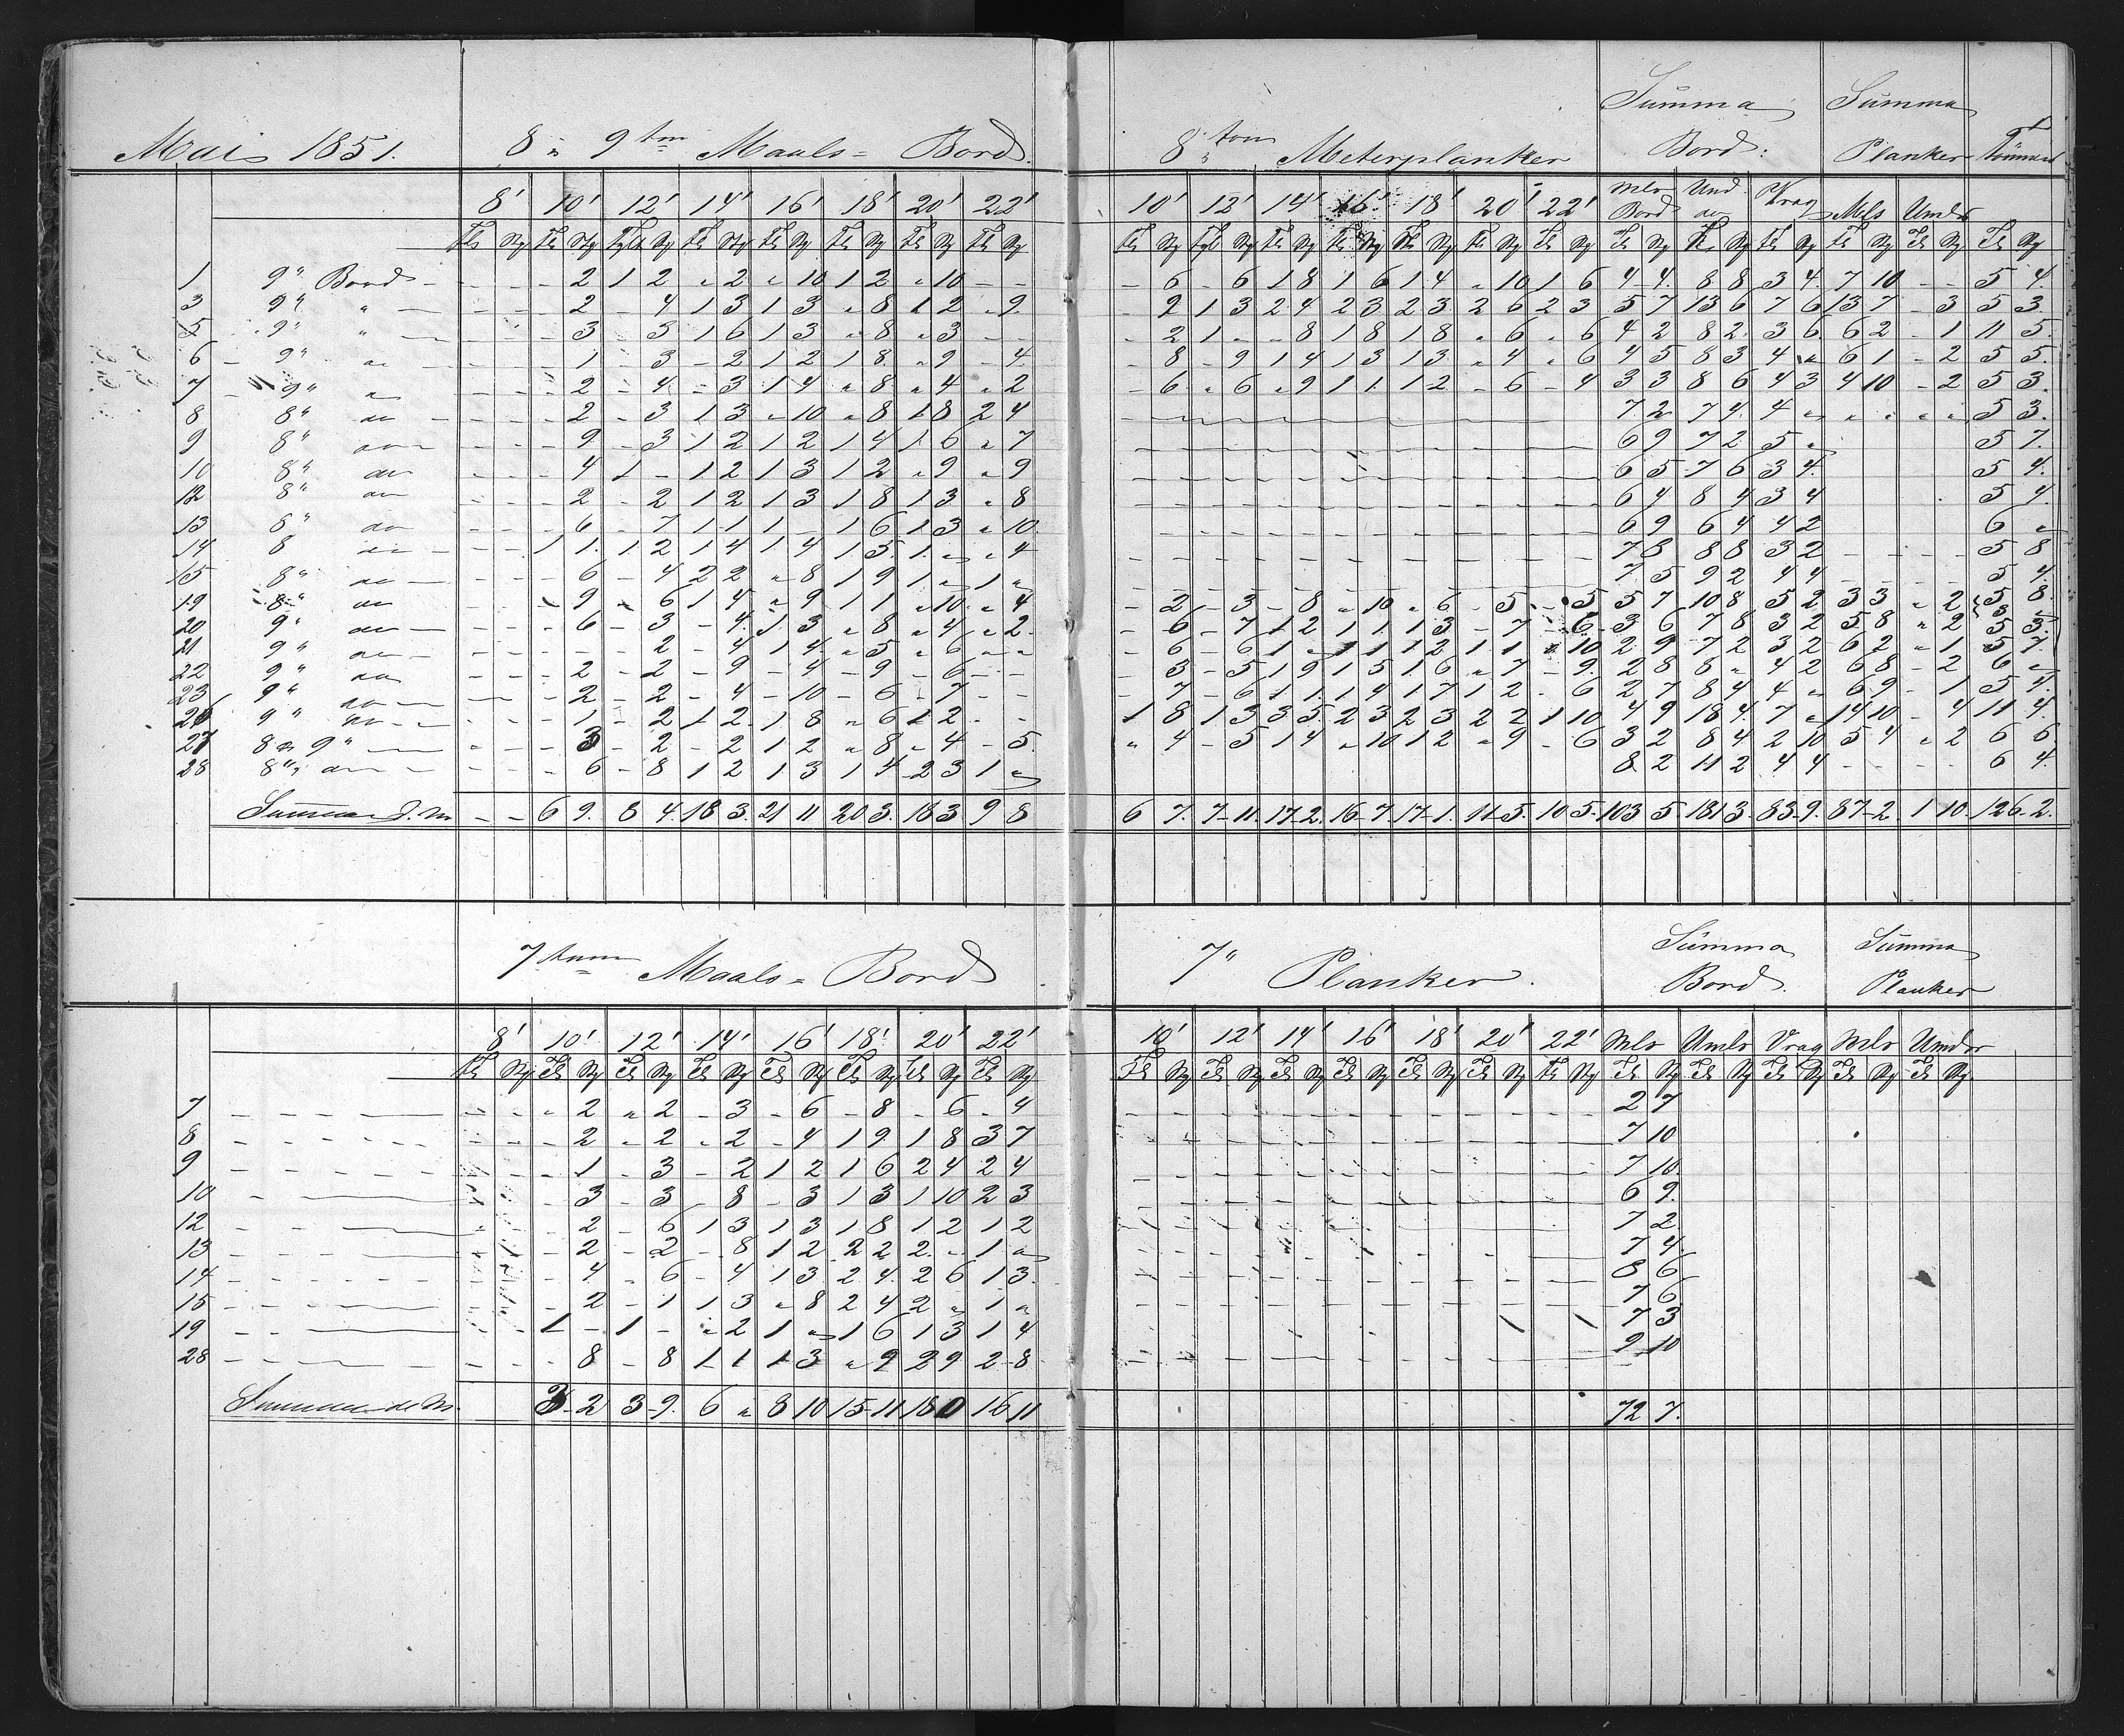 Mai 1851. 8 " 9 tm Maals = Bord. 8 tom Meterplanker Summa Bord: Summa Planker Tømmer
8' 10' 12' 14' 16' 18' 20' 22' 10' 12' 14' 16' 18' 20' 22' Mls Bord Und do Vrag Mls Umls
1 9" Bord - - - - 2 1 2 " 2 " 10 1 2 " 10 - - - 6 - 6 1 8 1 6 1 4 " 10 1 6 4 4 8 8 3 4 7 10 - - 5 4
3 9" " - - - - 2 - 4 1 3 1 3 " 8 1 2 " 9 - 9 1 3 2 4 2 3 2 3 2 6 2 3 5 7 13 6 7 6 13 7 - 3 5 3
5 9" " - - - - 3 - 3 1 6 1 3 " 8 " 3 - - - 2 1 - - 8 1 8 1 8 " 6 " 6 4 2 8 2 3 6 6 2 - 1 11 5
6 9" do - - - - 1 - 3 - 2 1 2 1 8 " 9 - 4 - 8 - 9 1 4 1 3 1 3 - 4 " 6 4 5 8 3 4 " 6 1 - 2 5 5
7 9" " - - - - 2 - 4 - 3 1 4 " 8 " 4 " 2 - 6 " 6 " 9 1 1 1 2 - 6 - 4 3 3 8 6 4 3 4 10 - 2 5 3
8 8" do - - - - 2 - 3 1 3 " 10 " 8 1 8 2 4 7 2 7 4 4 " " " " " 5 3
9 8" do - - - - 9 - 3 1 2 1 2 1 4 1 6 " 7 6 9 7 2 5 " 5 7
10 8" do - - - - 4 1 - 1 2 1 3 1 2 " 9 " 9 6 5 7 6 3 4 5 4
12 8" do - - - - 2 - 2 1 2 1 3 1 8 1 3 " 8 6 4 8 4 3 4 5 4
13 8" do - - - - 6 - 7 1 1 1 - 1 6 1 3 " 10 6 9 6 4 4 2 6 "
14 8 do - - - 1 1 1 2 1 4 1 4 1 5 1 " " 4 7 8 8 8 3 2 - - - - 5 8
15 8" do - - - - 6 - 4 2 2 " 8 1 9 1 " 1 " 7 5 9 2 4 4 - - - - 5 4
19 8" do - - - - 9 - 6 1 4 " 9 1 1 " 10 " 4 - 2 - 3 - 8 " 10 " 6 - 5 - 5 5 7 10 8 5 2 3 3 " 2 5 8
20 9" do - - - - 6 - 3 - 4 1 3 " 8 " 4 " 2 - 6 - 7 1 2 1 1 1 3 - 7 - 6 3 6 7 8 3 2 5 8 " 2 3 5
21 9" do - - - - - - 2 - 4 1 4 " 5 " 6 " " - 6 - 6 1 " 1 1 1 2 1 1 " 10 2 9 7 2 3 2 6 2 " 1 5 7
22 9" do - - - - 2 - 2 - 9 - 4 - 9 - 6 - - - 3 - 5 1 9 1 5 1 6 " 7 - 9 2 8 8 " 4 2 6 8 - 2 6 "
23 9" do - - - - 2 - 2 - 4 - 10 - 6 - 7 - - - 7 - 6 1 1 1 4 1 7 1 2 - 6 2 7 8 4 4 " 6 9 - 1 5 4
26 9" do - - - - 1 - 2 1 2 1 8 " 6 1 2 - - 1 8 1 3 3 5 2 3 2 3 2 2 1 10 4 9 18 4 7 " 14 10 - 4 11 4
27 8 " 9" - - - - 3 - 2 - 2 1 2 " 8 " 4 - 5 " 4 - 5 1 4 " 10 1 2 " 9 - 6 3 2 8 4 2 10 5 4 " 2 6 6
28 8" do - - - - 6 - 8 1 2 1 3 1 4 2 3 1 " 8 2 11 2 4 4 - - - - 6 4
Summa d. M - - 6 9 8 4 18 3 21 11 20 3 18 3 9 8 6 7 7-11 17-2 16-7 17-1 11-5 10 5 103 5 181 3 83-9 87-2 1 10 126-2
7 tum Maals = Bord 7" Planker. Summa Bord. Summa Planker
8' 10' 12' 14' 16' 18' 20' 22' 10' 12' 14' 16' 18' 20' 22' Mls Umls Vrag Mls Umdr
7 - - - - - " 2 " 2 - 3 - 6 - 8 - 6 - 4 2 7
8 - - - - - - 2 - 2 " 2 - 4 1 9 1 8 3 7 7 10
9 - - - - - - 1 - 3 - 2 1 2 1 6 2 4 2 4 7 10
10 - - - - 3 - 3 - 8 - 3 1 3 1 10 2 3 6 9
12 - - - - 2 - 6 1 3 1 3 1 8 1 2 1 2 7 2
13 - - - - 2 - 2 - 8 1 2 2 2 2 - 1 " 7 4
14 - - - - - 4 - 6 - 4 1 3 2 4 2 6 1 3 8 6
15 - - - - 2 - 1 1 3 " 8 2 4 2 " 1 " 7 6
19 - - - 1 - 1 - " 2 1 " 1 6 1 3 1 4 7 3
28 - - - - 8 - 8 1 1 1 3 " 9 2 9 2-8 9 10
Summa de M. 3-2 3-9 6 " 8 10 15-11 18 0 16 11 72 7.